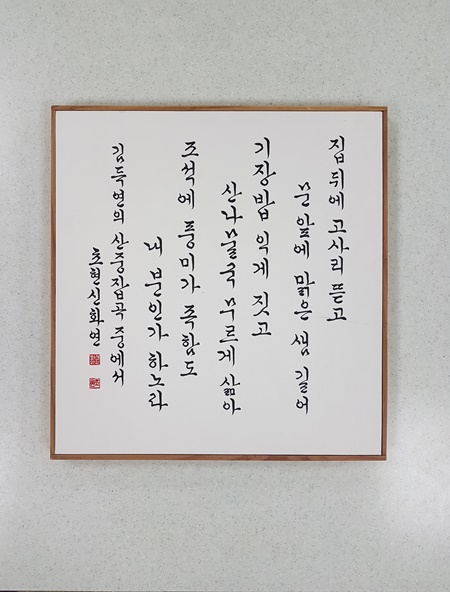 집 뒤에 고사리 뜯고
문 앞에 맑은 샘 길어
기장밥 익게 짓고
산나물국 무르게 삶아
조석에 풍미가 족함도
내 분인가 하노라
김득연의 산중잡곡 중에서
초현신화연